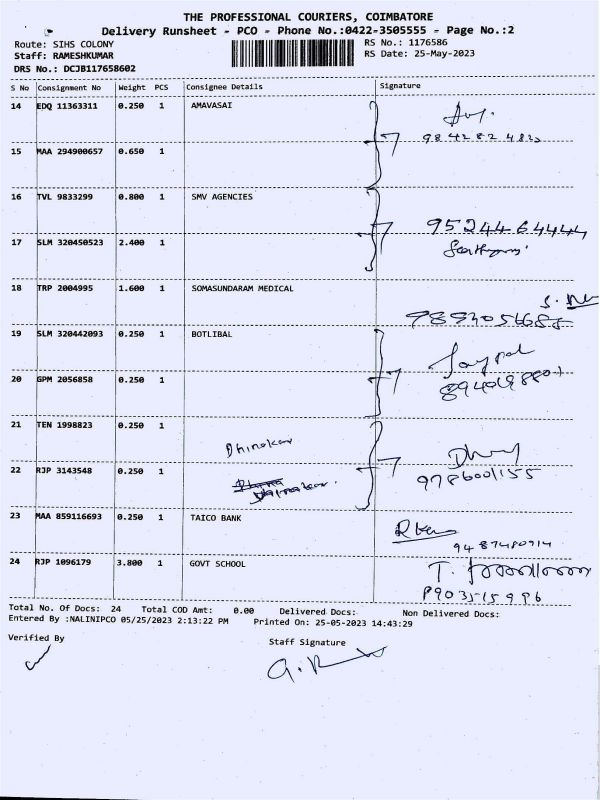 THE PROFESSIONAL COURIERS, COIMBATORE
Delivery Runsheet - PCO - Phone No.:0422-3505555 - Page No.:2
Route: SIHS COLONY
RS No.: 1176586
Staff: RAMESHKUMAR
RS Date: 25-May-2023
DRS No.: DCJB117658602
S No Consignment No Weight PCS Consignee Details Signature
14 EDQ 11363311 0.250 1 AMAVASAI
15 MAA 294900657 0.650 1
16 TVL 9833299 0.800 1 SMV AGENCIES
9524464444
17 SLM 320450523 2.400 1
18 TRP 2004995 1.600 1 SOMASUNDARAM MEDICAL
19 SLM 320442093 0.250 1 BOTLIBAL
20 GPM 2056858 0.250 1
21 TEN 1998823 0.250 1
Dhinakar
22 RJP 3143548 0.250 1
9786001155
23 MAA 859116693 0.250 1 TAICO BANK
24 RJP 1096179 3.800 1 GOVT SCHOOL
Total No. Of Docs: 24 Total COD Amt: 0.00 Delivered Docs: Non Delivered Docs:
Entered By :NALINIPCO 05/25/2023 2:13:22 PM Printed On: 25-05-2023 14:43:29
Verified By
Staff Signature